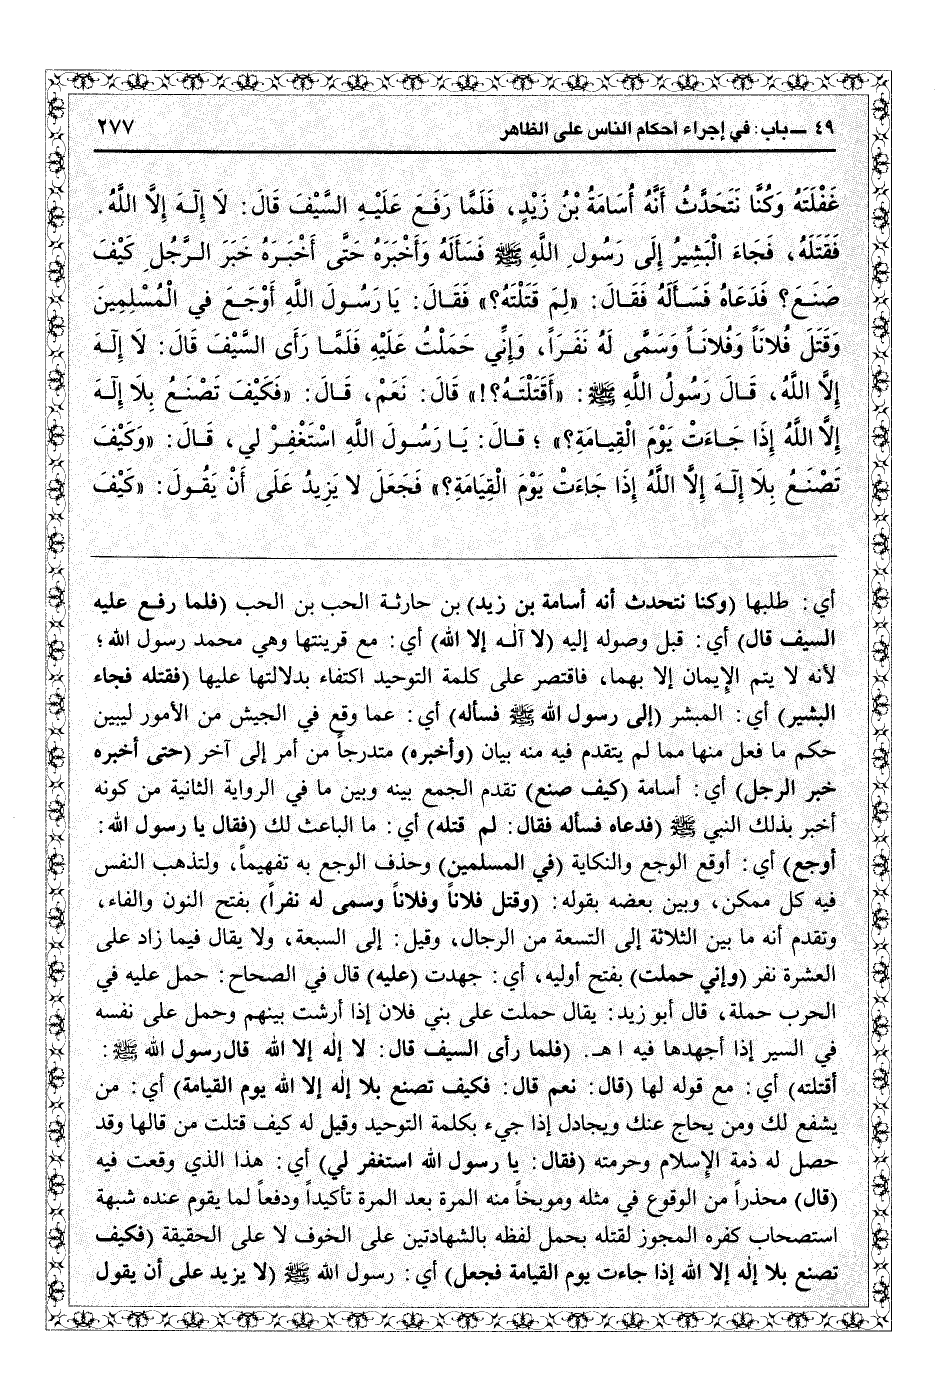 ٤٩ ــ باب: في إجراء أحكام الناس على الظاهر ٢٧٧
غَفْلَتَهُ وَكُنَّا نَتَحَدَّثُ أَنَّهُ أُسَامَةُ بْنُ زَيْدٍ، فَلَمَّا رَفَعَ عَلَيْهِ السَّيْفَ قَالَ: لَا إِلَـهَ إِلَّا اللَّهُ.
فَقَتَلَهُ، فَجَاءَ الْبَشِيرُ إِلَى رَسُولِ اللَّهِ ﷺ فَسَأَلَهُ وَأَخْبَرَهُ حَتَّى أَخْبَرَهُ خَبَرَ الرَّجُلِ كَيْفَ
صَنَعَ؟ فَدَعَاهُ فَسَأَلَهُ فَقَالَ: «لِمَ قَتَلْتَهُ؟» فَقَالَ: يَا رَسُولَ اللَّهِ أَوْجَعَ فِي الْمُسْلِمِينَ
وَقَتَلَ فُلَانَاً وَفُلَانَاً وَسَمَّى لَهُ نَفَرَاً، وَإِنِّي حَمَلْتُ عَلَيْهِ فَلَمَّا رَأَى السَّيْفَ قَالَ: لَا إِلَـهَ
إِلَّا اللَّهُ، قَالَ رَسُولُ اللَّهِ ﷺ: «أَقَتَلْتَهُ؟!» قَالَ: نَعَمْ، قَالَ: «فَكَيْفَ تَصْنَعُ بِلَا إِلَـهَ
إِلَّا اللَّهُ إِذَا جَاءَتْ يَوْمَ الْقِيامَةِ؟»؛ قالَ: يَا رَسُولَ اللَّهِ اسْتَغْفِرْ لي، قَالَ: «وَكَيْفَ
تَصْنَعُ بِلَا إِلَـهَ إِلَّا اللَّهُ إِذَا جَاءَتْ يَوْمَ الْقِيَامَةِ؟» فَجَعَلَ لا يَزِيدُ عَلَى أَنْ يَقُولَ: «كَيْفَ
أي: طلبها (وكنا نتحدث أنه أسامة بن زيد) بن حارثة الحب بن الحب (فلما رفع عليه
السيف قال) أي: قبل وصوله إليه (لا آلـه إلا الله) أي: مع قرينتها وهي محمد رسول الله؛
لأنه لا يتم الإيمان إلا بهما، فاقتصر على كلمة التوحيد اكتفاء بدلالتها عليها (فقتله فجاء
البشير) أي: المبشر (إلى رسول الله ﷺ فسأله) أي: عما وقع في الجيش من الأمور ليبين
حكم ما فعل منها مما لم يتقدم فيه منه بيان (وأخبره) متدرجاً من أمر إلى آخر (حتى أخبره
خبر الرجل) أي: أسامة (كيف صنع) تقدم الجمع بينه وبين ما في الرواية الثانية من كونه
أخبر بذلك النبي ﷺ (فدعاه فسأله فقال: لم قتله) أي: ما الباعث لك (فقال يا رسول الله:
أوجع) أي: أوقع الوجع والنكاية (في المسلمين) وحذف الوجع به تفهيماً، ولتذهب النفس
فيه كل ممكن، وبين بعضه بقوله: (وقتل فلاناً وفلاناً وسمى له نفراً) بفتح النون والفاء،
وتقدم أنه ما بين الثلاثة إلى التسعة من الرجال، وقيل: إلى السبعة، ولا يقال فيما زاد على
العشرة نفر (وإني حملت) بفتح أوليه، أي: جهدت (عليه) قال في الصحاح: حمل عليه في
الحرب حملة، قال أبو زيد: يقال حملت على بني فلان إذا أرشت بينهم وحمل على نفسه
في السير إذا أجهدها فيه اهـ. (فلما رأى السيف قال: لا إلٰه إلا الله قال رسول الله ﷺ:
أقتلته) أي: مع قوله لها (قال: نعم قال: فكيف تصنع بلا إلٰه إلا الله يوم القيامة) أي: من
يشفع لك ومن يحاج عنك ويجادل إذا جيء بكلمة التوحيد وقيل له كيف قتلت من قالها وقد
حصل له ذمة الإسلام وحرمته (فقال: يا رسول الله استغفر لي) أي: هذا الذي وقعت فيه
(قال) محذراً من الوقوع في مثله وموبخاً منه المرة بعد المرة تأكيداً ودفعاً لما يقوم عنده شبهة
استصحاب كفره المجوز لقتله بحمل لفظه بالشهادتين على الخوف لا على الحقيقة (فكيف
تصنع بلا إلٰه إلا الله إذا جاءت يوم القيامة فجعل) أي: رسول الله ﷺ (لا يزيد على أن يقول